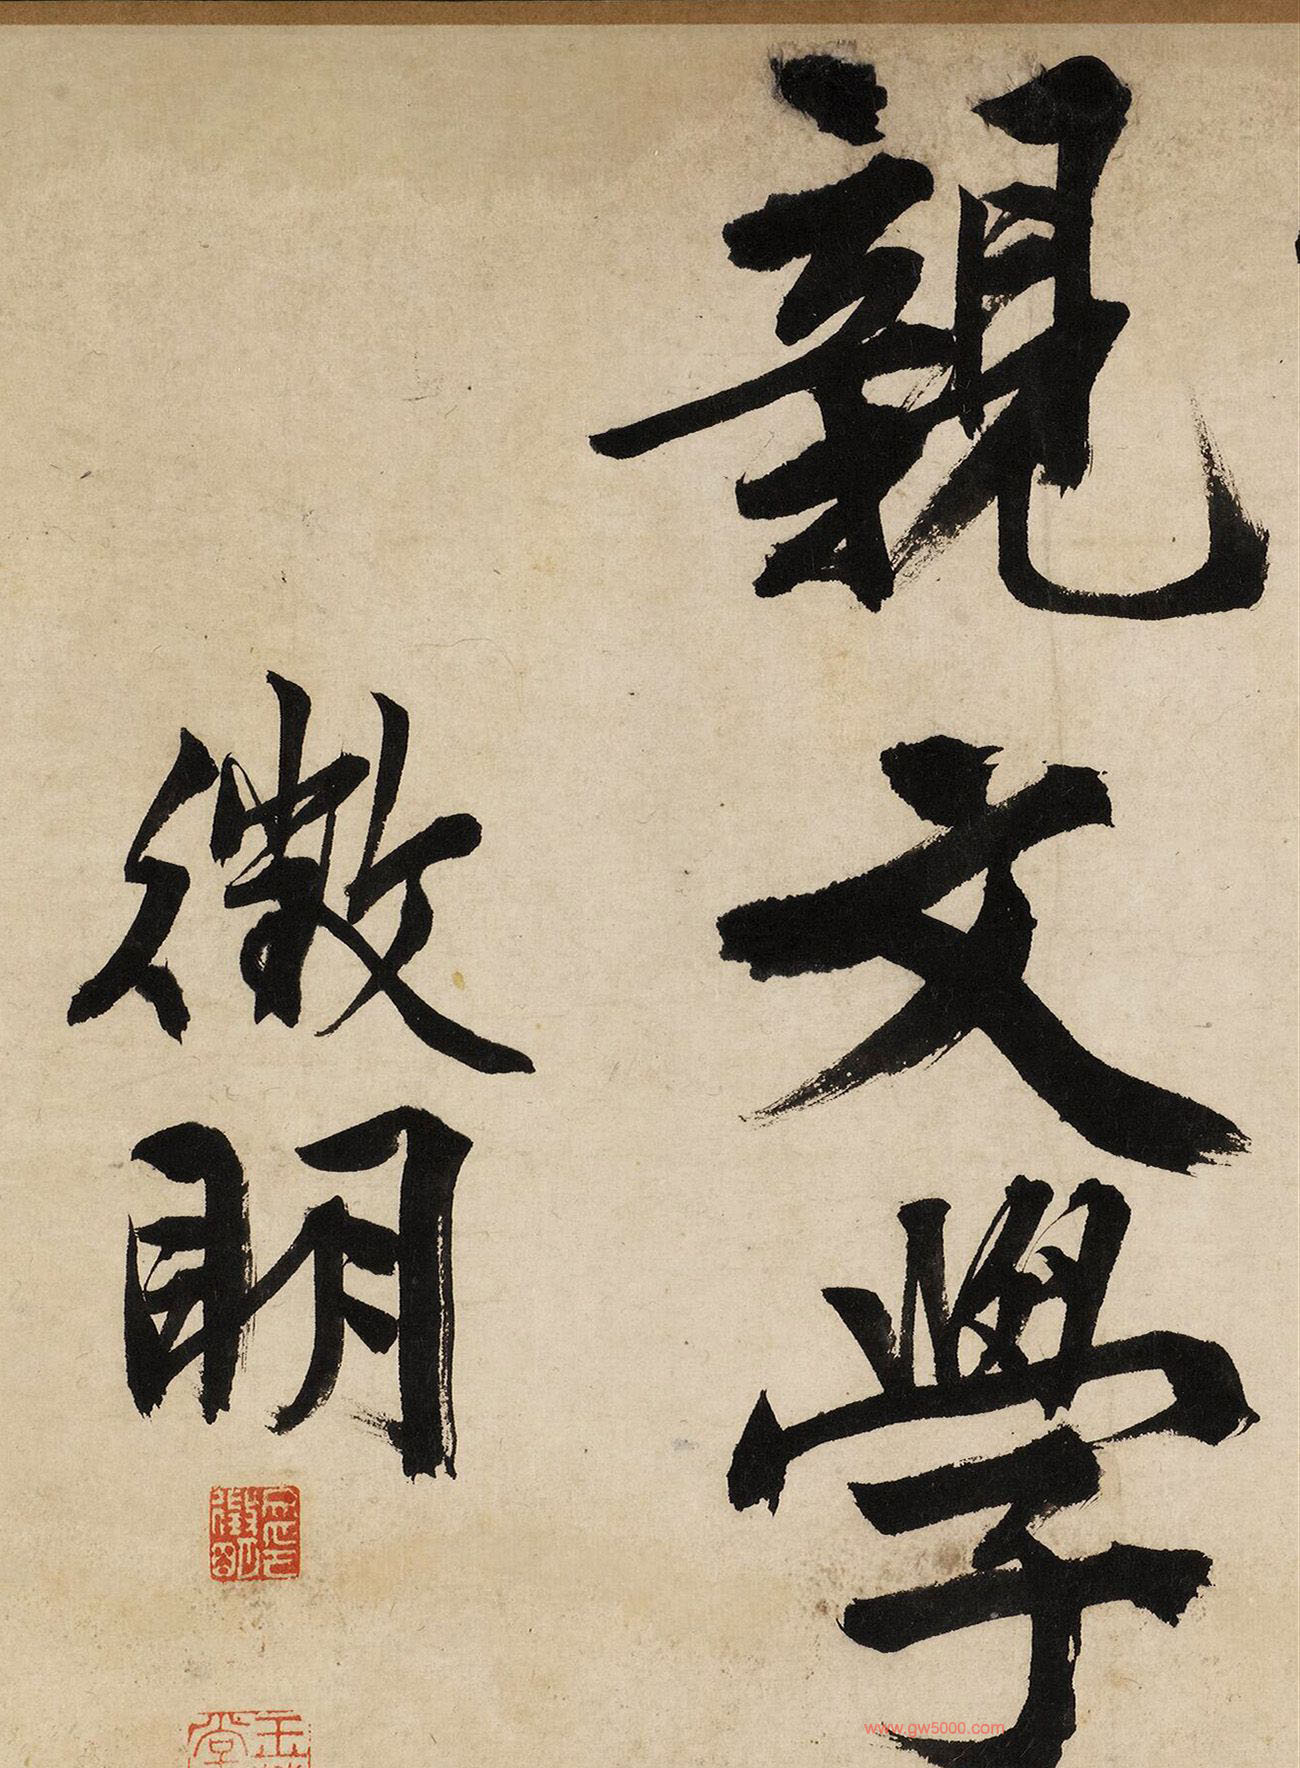 親文學
徵明
www.gw5000.com